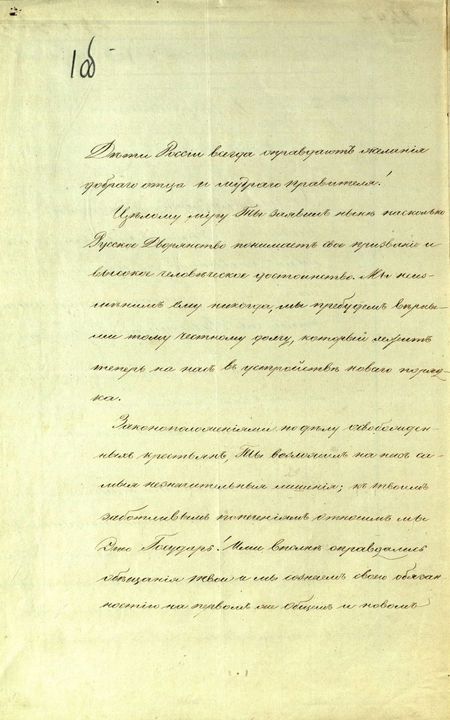 1об
Дѣти Россіи всегда оправдаютъ желанія
добраго отца и мудраго правителя!
Цѣлому міру Ты заявилъ нынѣ насколько
Русское Дворянство понимаетъ свое призваніе и
высокое человѣческое достоинство. Мы неиз-
мѣнимъ ему никогда, мы пребудемъ вѣрны-
ми тому честному долгу, который лежитъ
теперь на насъ въ устройствѣ новаго поряд-
ка.
Законоположеніями по дѣлу освобожден-
ныхъ крестьянъ, Ты возложилъ на насъ са-
мыя незначительныя лишенія; къ твоимъ
заботливымъ попеченіямъ относимъ мы
Это Государь! Ими вполнѣ оправдались
обѣщанія твои и мы сознаемъ своею обязан-
ностію на первомъ же общемъ и новомъ